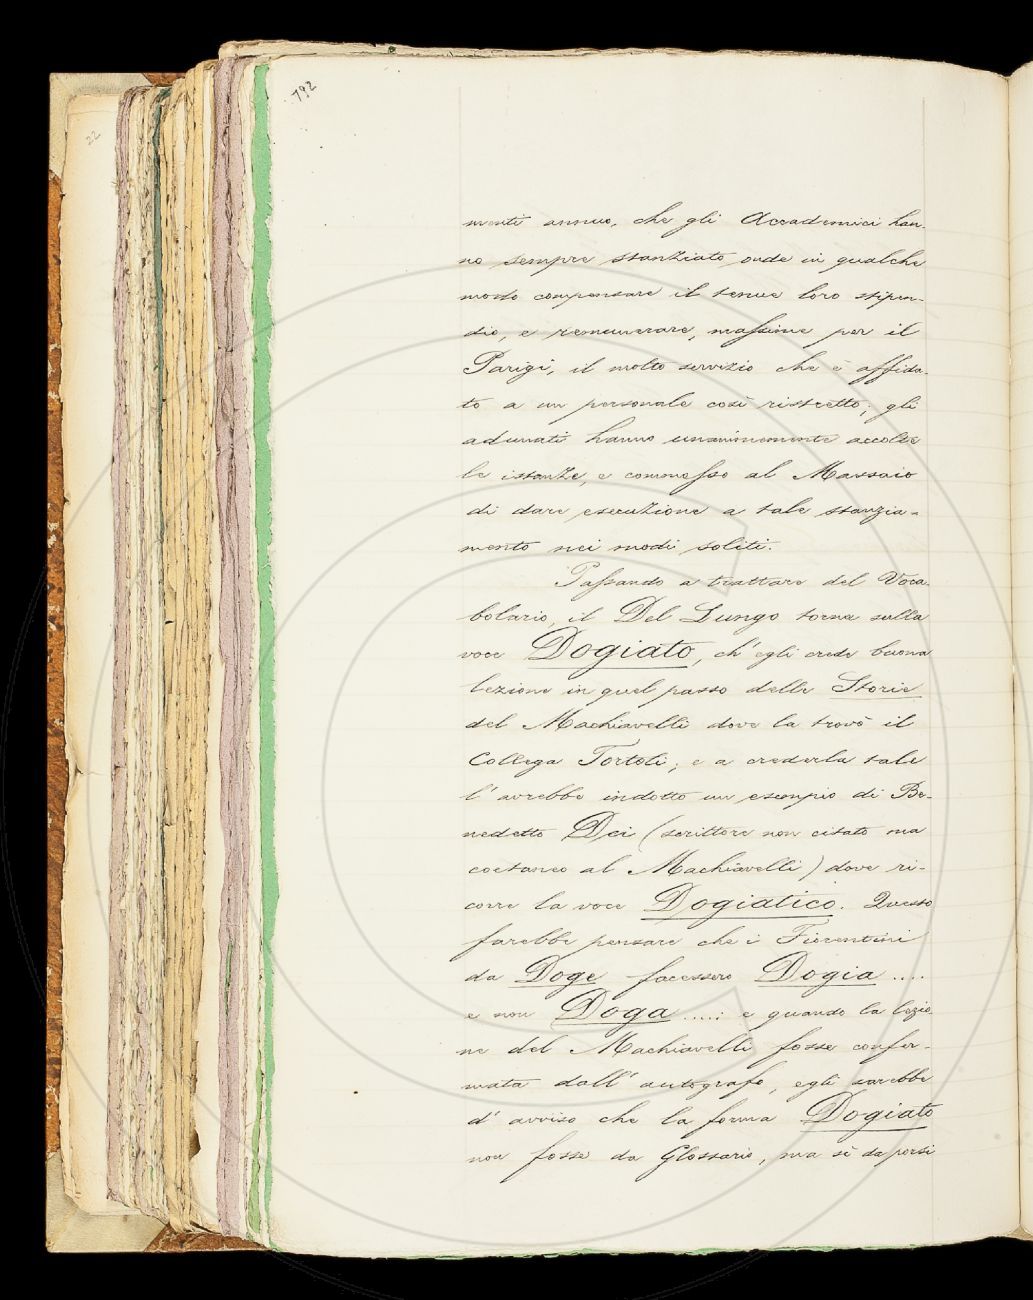 192
22
menti annue, che gli Accademici han-
no sempre stanziato onde in qualche
modo compensare il tenue loro stipen-
dio, e remunerare, massime per il
Parigi, il molto servizio che è affida-
to a un personale così ristretto; gli
adunati hanno unanimemente accolte
le istanze, e commesso al Massaio
di dare esecuzione a tale stanzia-
mento nei modi soliti.
Passando a trattare del Voca-
bolario, il Del Lungo torna sulla
voce Dogiato, ch'egli crede buona
lezione in quel passo delle Storie
del Machiavelli dove la trovò il
Collega Tortoli; e a crederla tale
l'avrebbe indotto un esempio di Be-
nedetto Dei (scrittore non citato ma
coetaneo al Machiavelli) dove ri-
corre la voce Dogiatico. Questo
farebbe pensare che i Fiorentini
da Doge facessero Dogia ....
e non Doga ....: e quando la lezio
ne del Machiavelli fosse confer-
mata dall'autografo, egli sarebbe
d'avviso che la forma Dogiato
non fosse da Glossario, ma sì da porsi